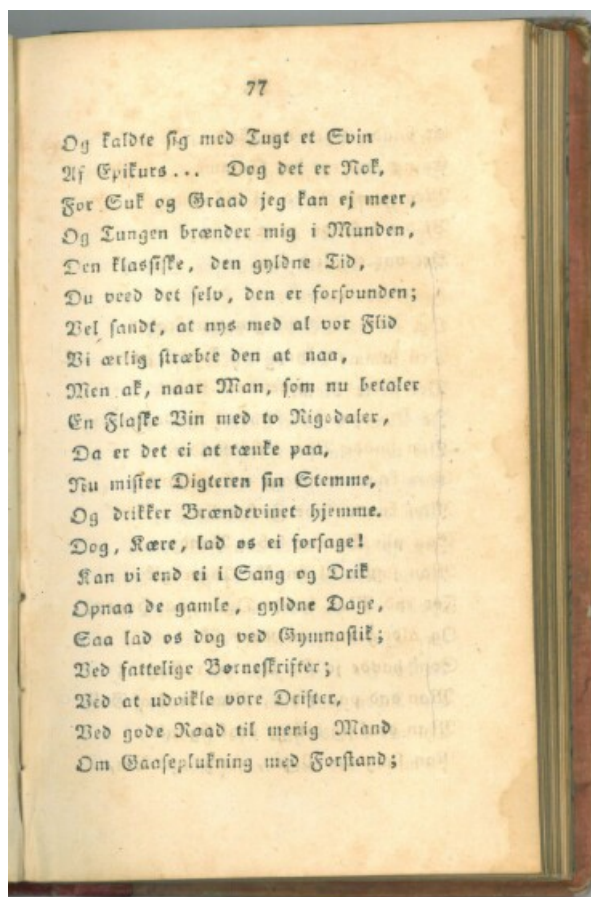 77
Og kaldte sig med Tugt et Svin
Af Epikurs... Dog det er Nok,
For Suk og Graad jeg kan ej meer,
Og Tungen brænder mig i Munden,
Den klassiske, den gyldne Tid,
Du veed det selv, den er forsvunden;
Vel sandt, at nys med al vor Flid
Vi ærlig stræbte den at naa,
Men ak, naar Man, som nu betaler
En Flaske Vin med to Rigsdaler,
Da er det ei at tænke paa,
Nu mister Digteren sin Stemme,
Og drikker Brændevinet hjemme.
Dog, Kære, lad os ei forsage!
Kan vi end ei i Sang og Drik
Opnaa de gamle, gyldne Dage,
Saa lad os dog ved Gymnastik;
Ved fattelige Børneskrifter;
Ved at udvikle vore Drifter,
Ved gode Raad til menig Mand
Om Gaaseplukning med Forstand;